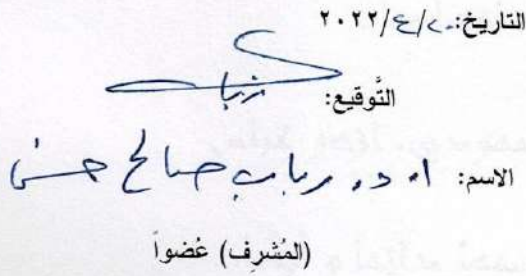 التاريخ: ٢٠/٤/٢٠٢٢
التَّوقيع:
الاسم: ا. د. رباب صالح حسن
(المُشرِف) عُضواً